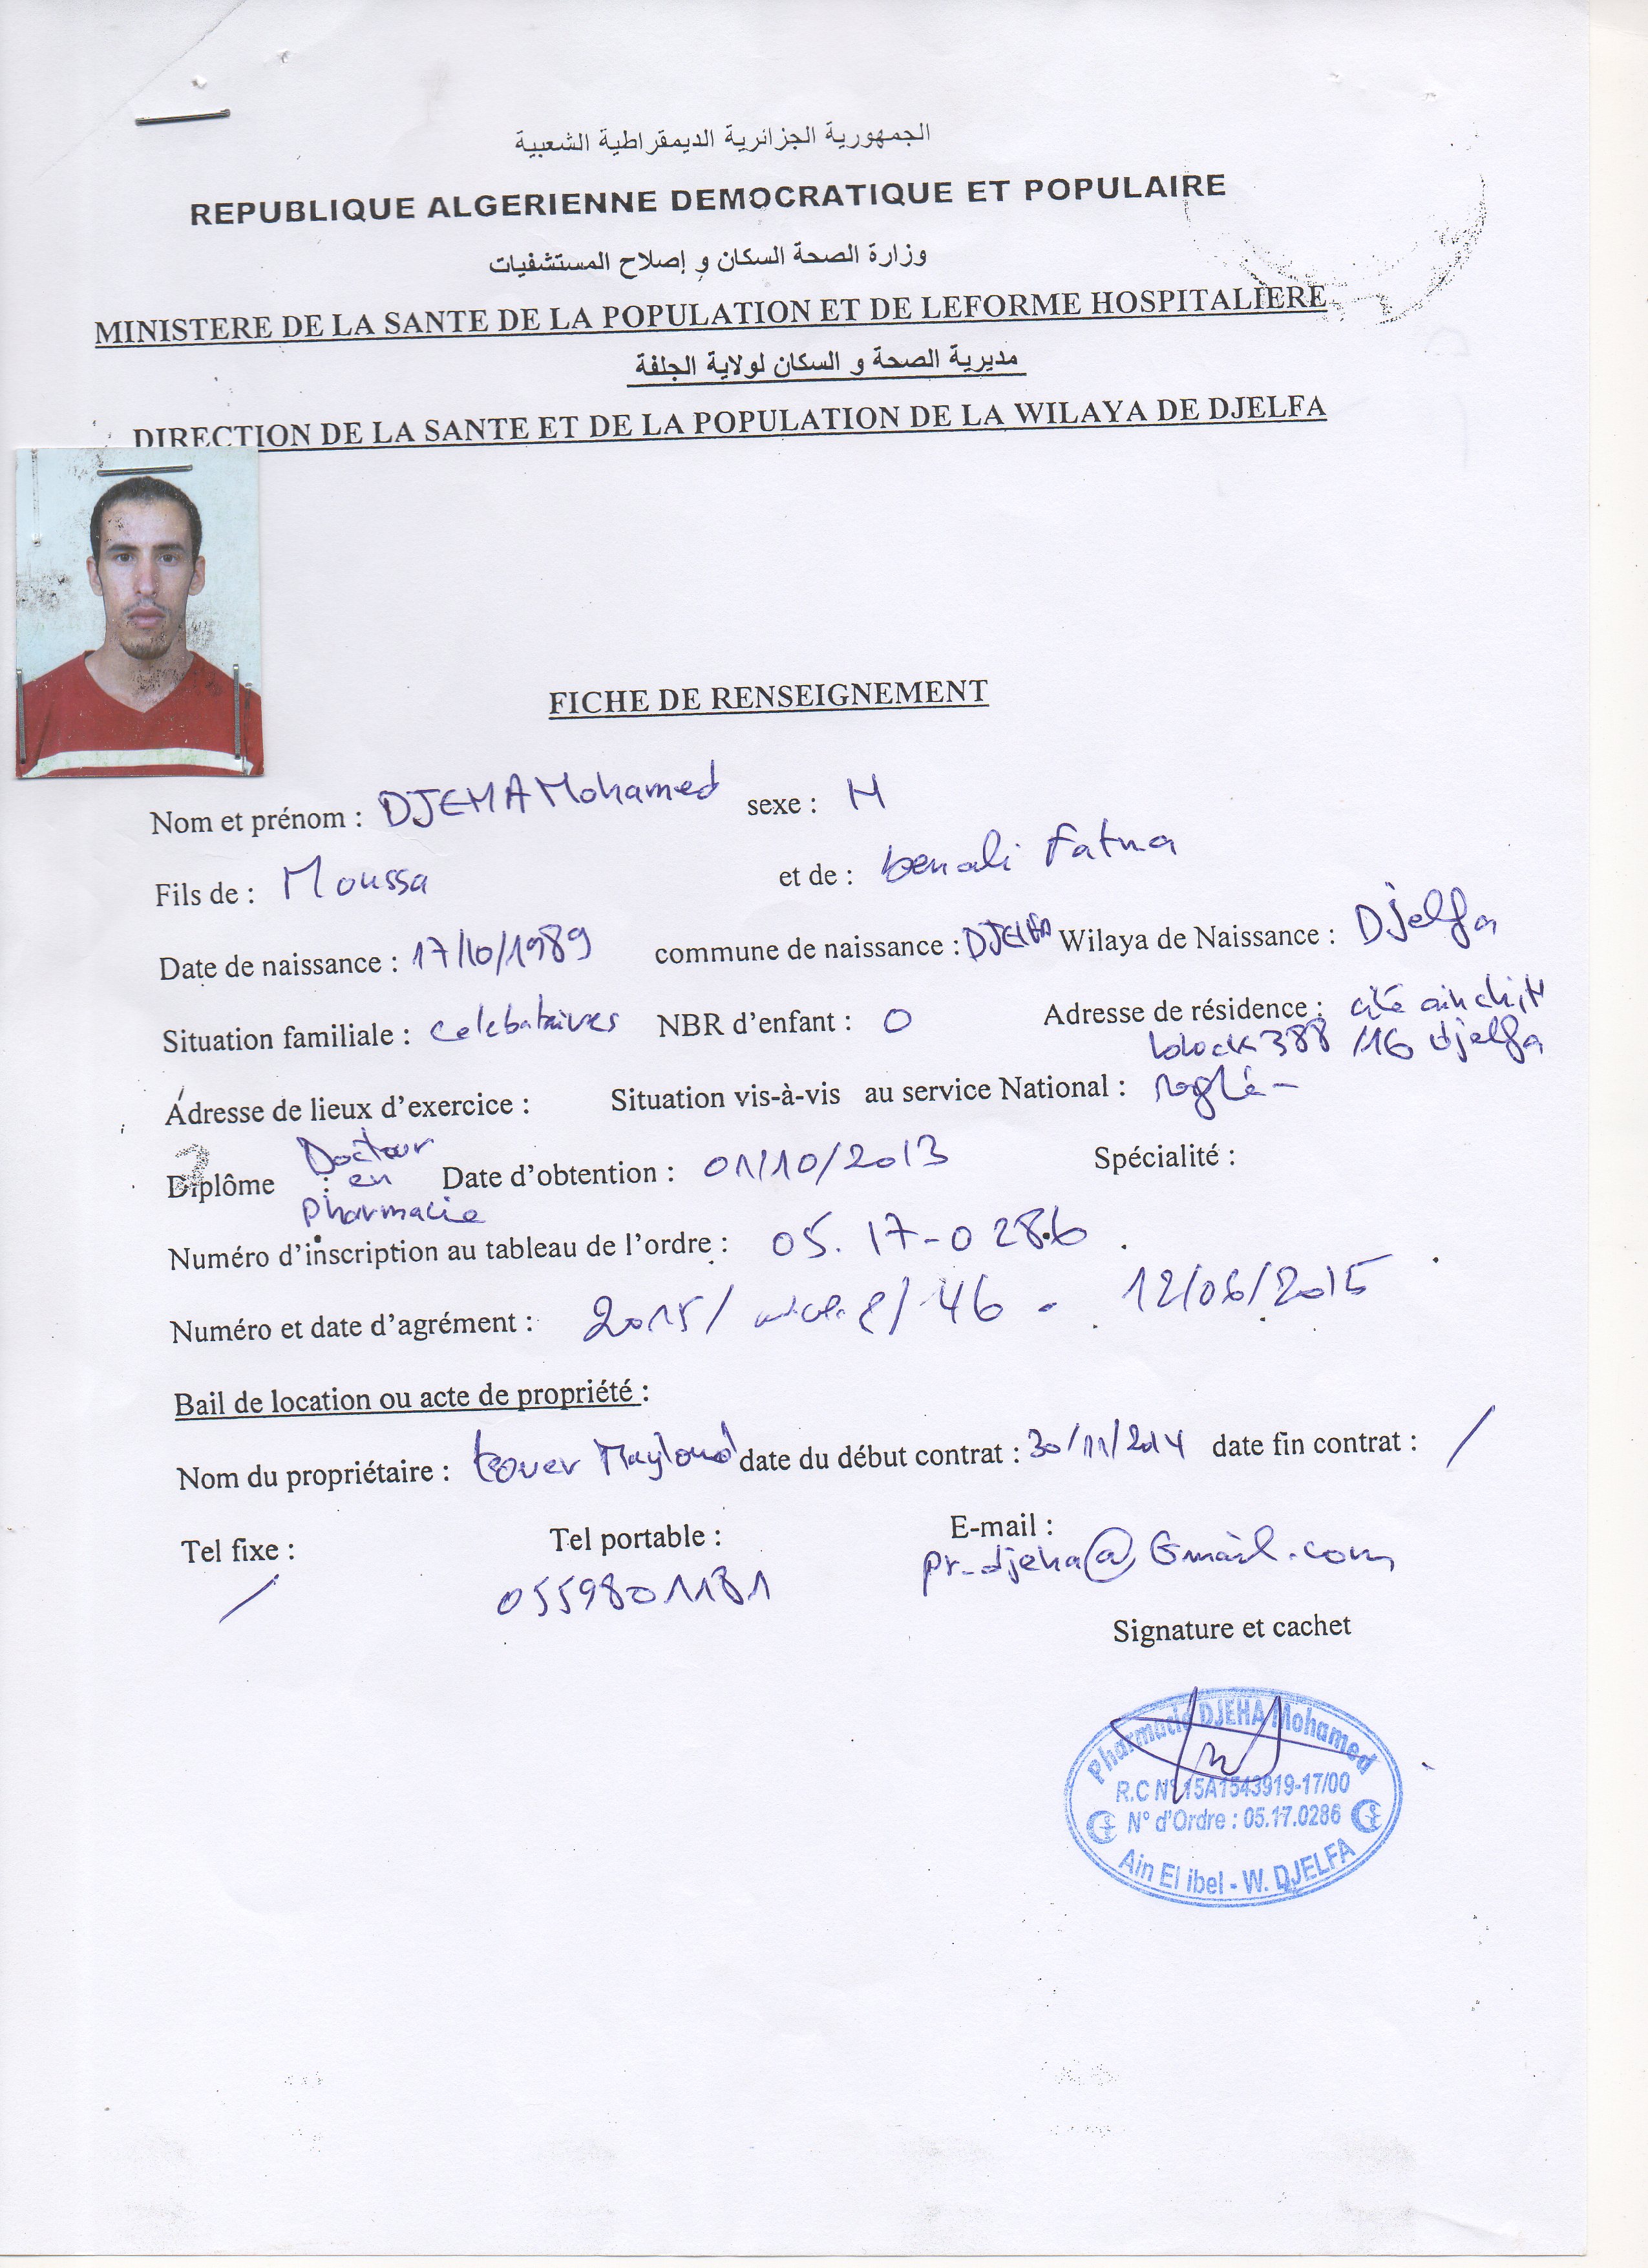 الجمهورية الجزائرية الديمقراطية الشعبية
REPUBLIQUE ALGERIENNE DEMOCRATIQUE ET POPULAIRE
وزارة الصحة السكان و إصلاح المستشفيات
MINISTERE DE LA SANTE DE LA POPULATION ET DE LEFORME HOSPITALIERE
مديرية الصحة و السكان لولاية الجلفة
DIRECTION DE LA SANTE ET DE LA POPULATION DE LA WILAYA DE DJELFA
FICHE DE RENSEIGNEMENT
Nom et prénom : DJEHA Mohamed sexe : M
Fils de : Moussa et de : benali Fatna
Date de naissance : 17/10/1989 commune de naissance : DJELFA Wilaya de Naissance : Djelfa
Situation familiale : NBR d'enfant : 0 Adresse de résidence : cité ain
block 388 /16 djelfa
Adresse de lieux d'exercice : Situation vis-à-vis au service National : réglé -
Diplôme : Docteur en pharmacie Date d'obtention : 01/10/2013 Spécialité :
Numéro d'inscription au tableau de l'ordre : 05. 17-0286
Numéro et date d'agrément : 2015/ /46 - 12/06/2015
Bail de location ou acte de propriété :
Nom du propriétaire : date du début contrat : 30/11/2014 date fin contrat : /
Tel fixe : / Tel portable : E-mail :
0559801181 pr-djeha@Gmail.com
Signature et cachet
Pharmacie DJEHA Mohamed
R.C N° 15A1543919-17/00
N° d'Ordre : 05.17.0286
Ain El ibel - W. DJELFA